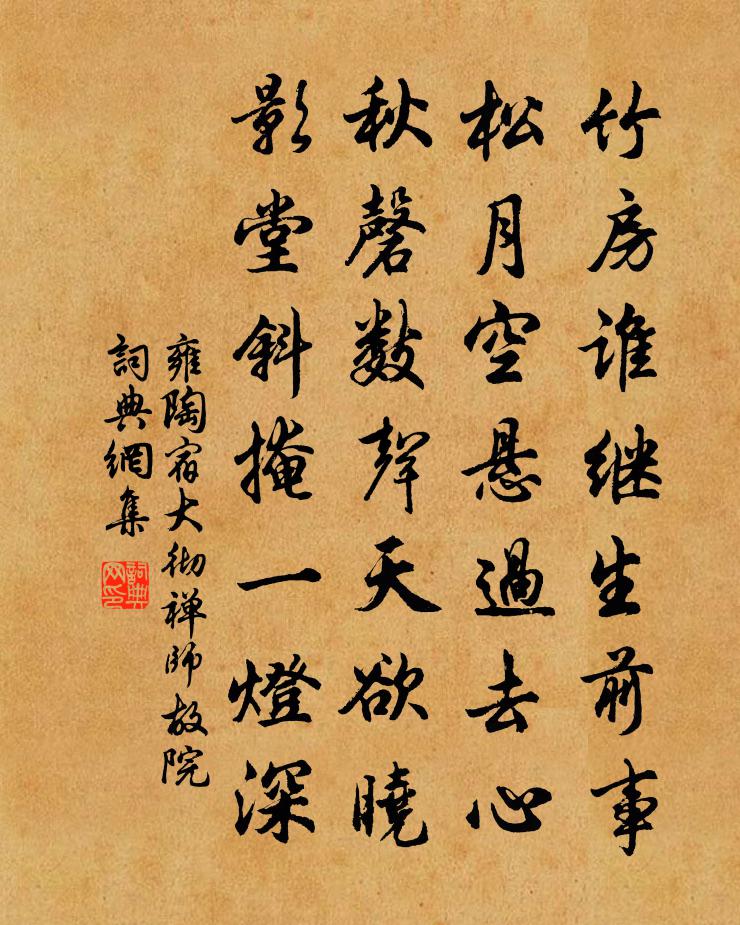 竹房谁继生前事
松月空悬過去心
秋磬数聲天欲曉
影堂斜掩一燈深
雍陶宿大彻禅師故院
詞典網集
詞典网印